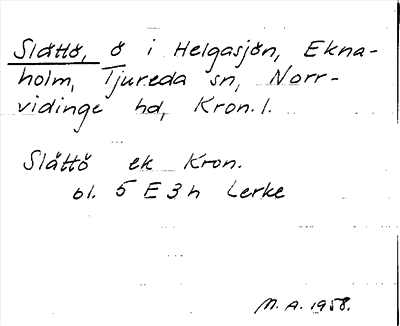 Slättö, ö i Helgasjön, Ekna-
holm, Tjureda sn, Norr-
vidinge hd, Kron. l.
Slättö ek Kron.
bl. 5 E 3 h Lerke
M. A. 1958.